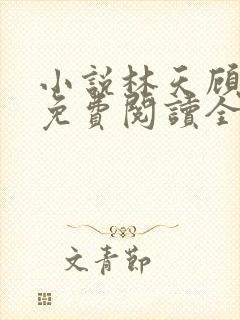 小說林天顧
免費閱讀全
文青節